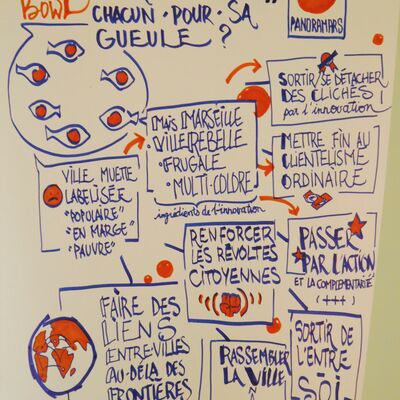 BOWL
CHACUN • POUR • SA
GUEULE ?
PANORAMARS
SORTIR/SE DÉTACHER
DES CLICHÉS
par l'innovation
MAIS MARSEILLE
• VILLE REBELLE
• FRUGALE
• MULTI-COLORE
ingrédients de l'innovation
METTRE FIN AU
CLIENTÉLISME
ORDINAIRE
VILLE MUETTE
LABELISÉE
"POPULAIRE"
"EN MARGE"
"PAUVRE"
RENFORCER
LES RÉVOLTES
CITOYENNES
PASSER
PAR L'ACTION
ET LA COMPLÉMENTARITÉ
(+++)
FAIRE DES
LIENS
ENTRE-VILLES
AU-DELÀ DES
FRONTIÈRES
RASSEMBLER
LA VILLE
SORTIR DE
L'ENTRE
SOI